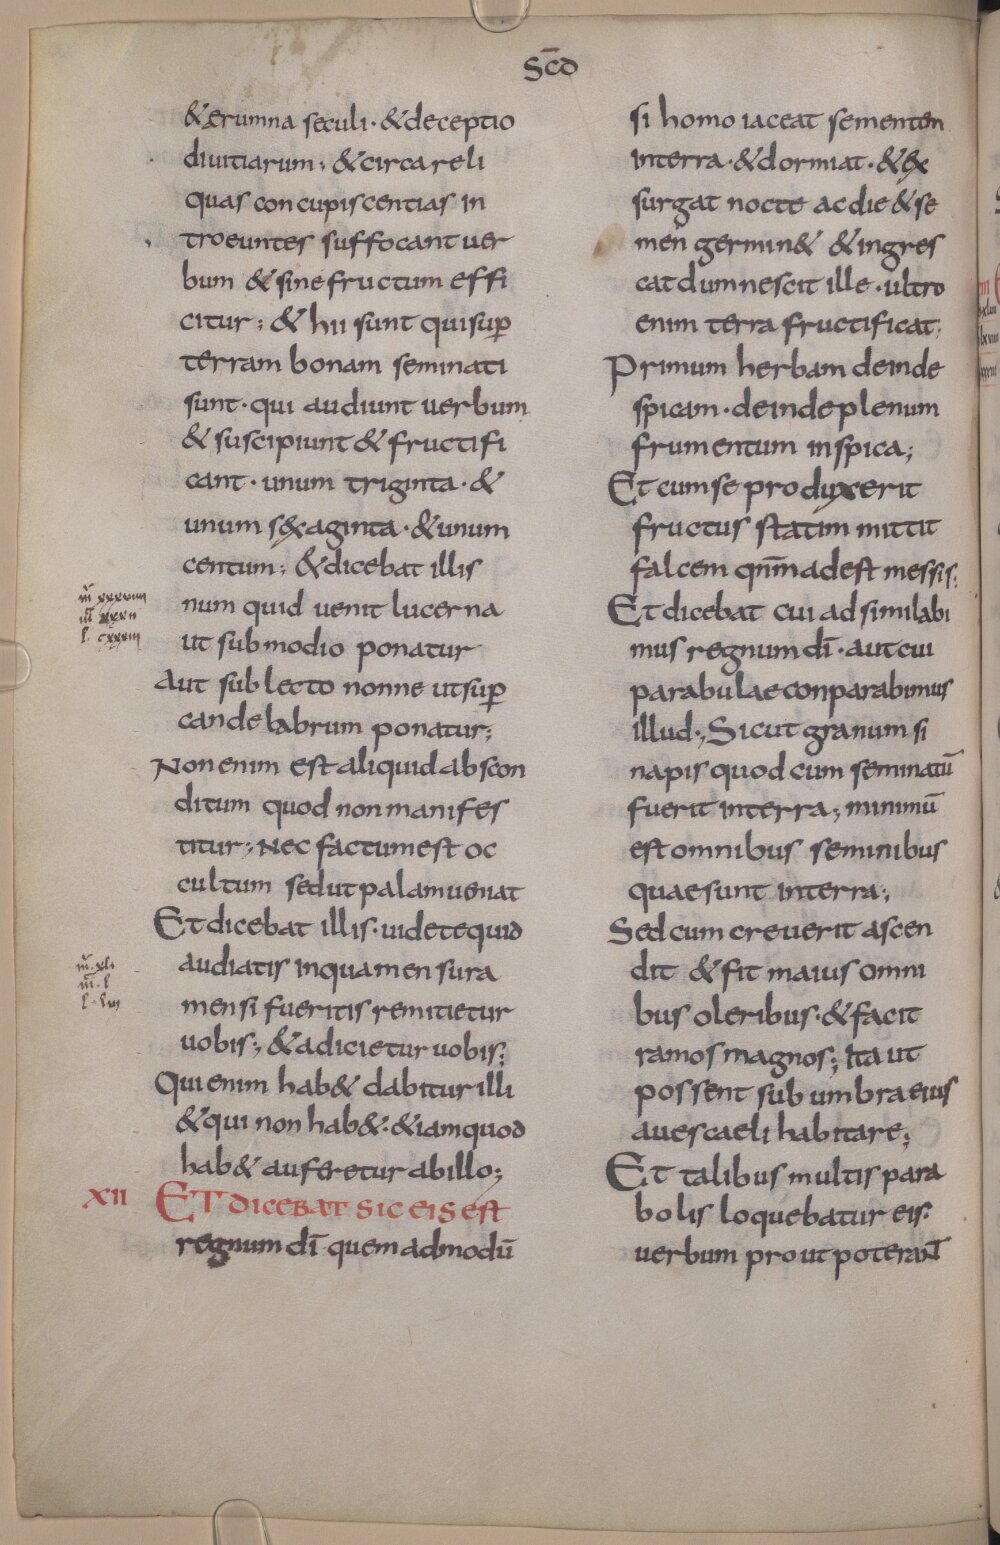 Sc̄d
&erumna seculi · &deceptio
diuitiarum ; &circareli
quas concupiscentias in
troeuntes suffocantuer
bum &sinefructum effi
citur ; & hii sunt quisuꝑ
terram bonam seminati
sunt · qui audiunt uerbum
& suscipiunt & fructifi
cant · unum triginta · &
unum s&xaginta · &unum
centum ; &dicebat illis
num quid uenit lucerna
ut submodio ponatur
Aut sublecto nonne utsuꝑ
candelabrum ponatur ;
Nonenim estaliquidabscon
ditum quod nonmanifes
titur ; Nec factumest oc
cultum sedutpalamueniat
Etdicebat illis · uidetequid
audiatis inquamensura
mensi fueritis remitietur
uobis ; &adicieturuobis ;
Quienim hab& dabiturilli
&qui nonhab& · &iamquod
hab& auferetur abillo ;
XII ET DICEBAT SIC EIS est
regnum dī quemadmodū
si homo iaceat sementem
interra · &dormiat · &ex
surgat nocte acdie &se
men germin& &ingres
cat dumnescit ille · ultro
enim terra fructificat ;
Primum herbam deinde
spicam · deindeplenum
frumentum inspica ;
Et cumse produxerit
fructus statim mittit
falcem qnm̄adest messis ;
Et dicebat cui adsimilabi
mus regnum dī · autcui
parabulaeconparabimus
illud ; Sicut granum si
napis quod cum seminatū
fuerit interra ; minimū
est omnibus seminibus
quaesunt interra ;
Sedcum creuerit ascen
dit &fit maius omni
bus oleribus · &facit
ramos magnos ; Itaut
possent sub umbraeius
auescaeli habitare ;
Et talibus multis para
bolis loquebatur eis ·
uerbum proutpoterant